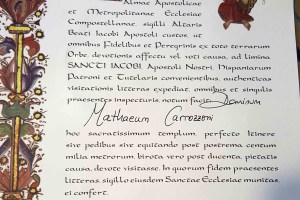 Almae Apostolicae
et Metropolitanae Ecclesiae
Compostellanae, sigilli Altaris
Beati Iacobi Apostoli custos, ut
omnibus Fidelibus et Peregrinis ex toto terrarum
Orbe, devotionis affectu vel voti causa, ad limina
SANCTI IACOBI Apostoli Nostri, Hispaniarum
Patroni et Tutelaris convenientibus, authenticas
visitationis litteras expediat, omnibus et singulis
praesentes inspecturis, notum facit: Dominum
Mathaeum Carrozzoni
hoc sacratissimum templum, perfecto itinere
sive pedibus sive equitando post postrema centum
milia metrorum, birota vero post ducenta, pietatis
causa, devote visitasse. In quorum fidem praesentes
litteras, sigillo eiusdem Sanctae Ecclesiae munitas,
ei confert.